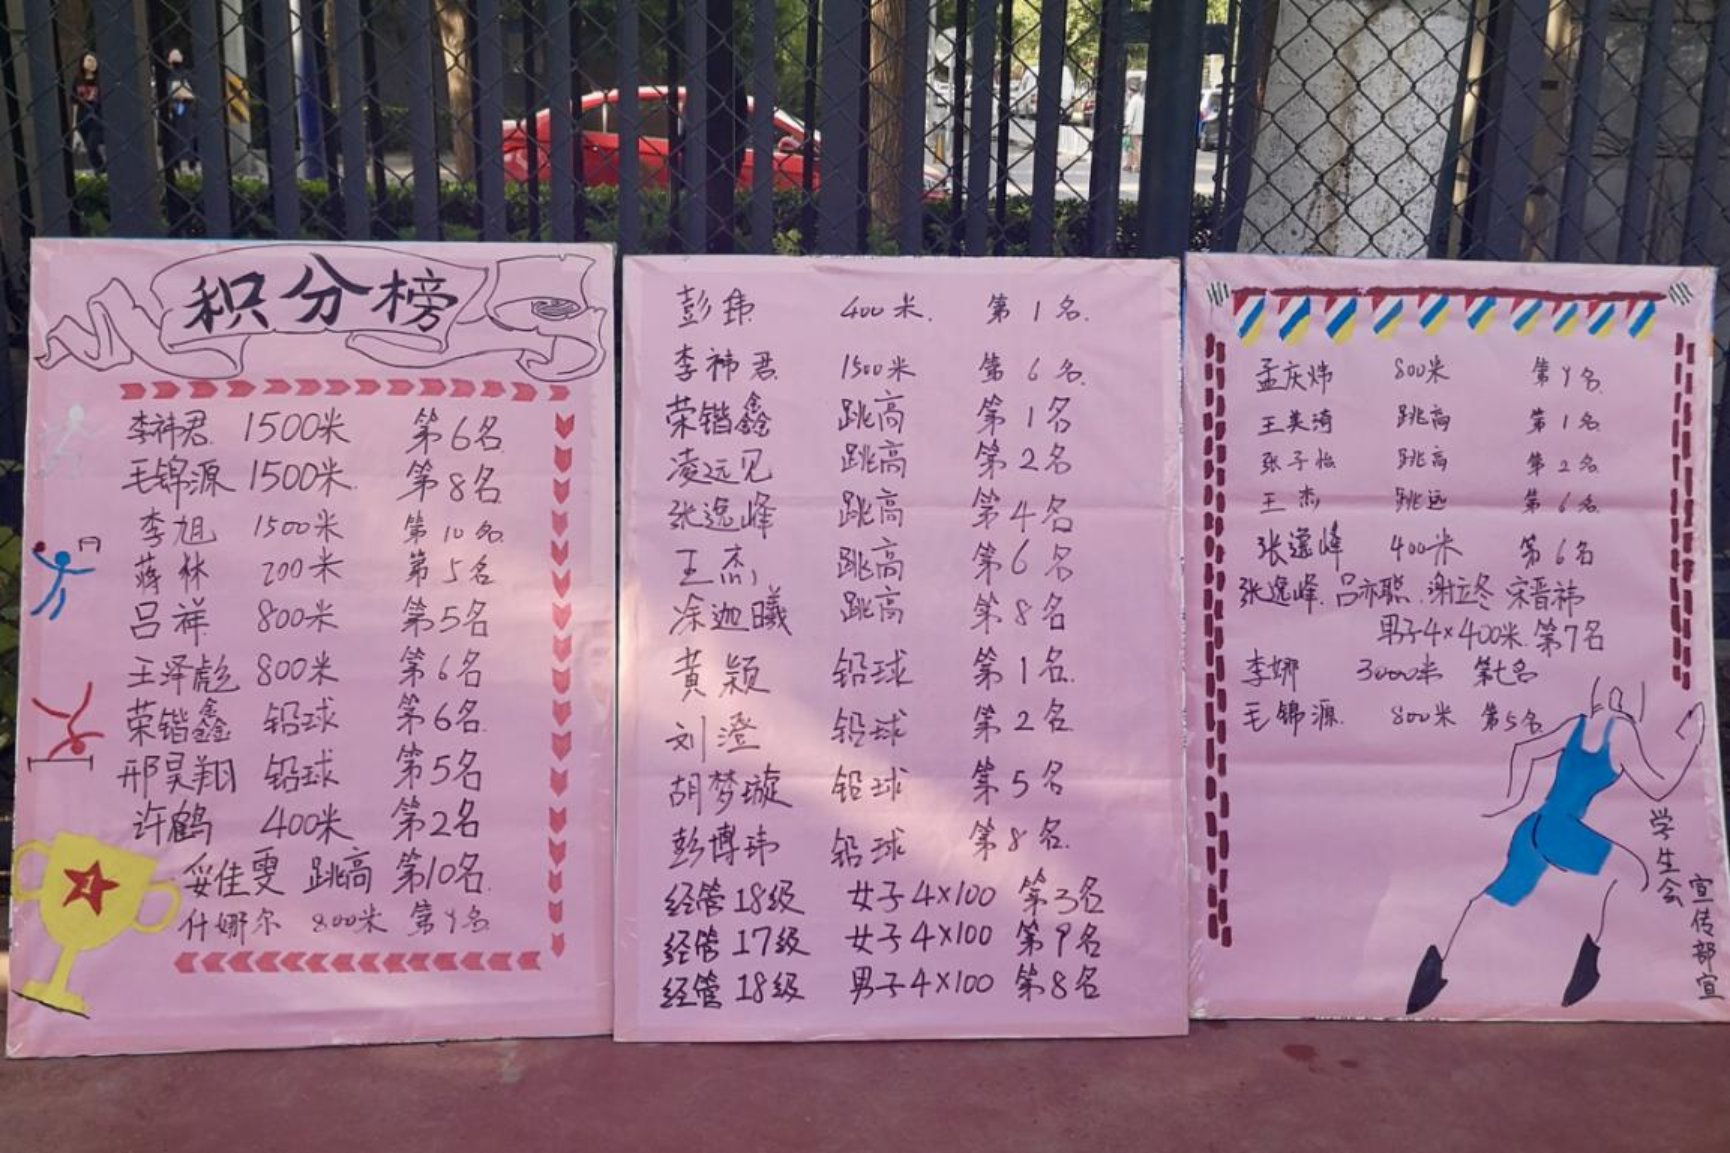 积分榜
李祎君 1500米 第6名
毛锦源 1500米 第8名
李旭 1500米 第10名
蒋林 200米 第5名
吕祥 800米 第5名
王泽彪 800米 第6名
荣锴鑫 铅球 第6名
邢昊翔 铅球 第5名
许鹤 400米 第2名
妥佳雯 跳高 第10名
什娜尔 800米 第9名
彭玮 400米 第1名
李祎君 1500米 第6名
荣锴鑫 跳高 第1名
凌远见 跳高 第2名
张逸峰 跳高 第4名
王杰 跳高 第6名
涂迦曦 跳高 第8名
黄颖 铅球 第1名
刘澄 铅球 第2名
胡梦璇 铅球 第5名
彭博玮 铅球 第8名
经管18级 女子4×100 第3名
经管17级 女子4×100 第9名
经管18级 男子4×100 第8名
孟庆炜 800米 第9名
王美琦 跳高 第1名
张子怡 跳高 第2名
王杰 跳远 第6名
张逸峰 400米 第6名
张逸峰 吕亦聪 谢立冬 宋晋祎
男子4×400米 第7名
李娜 3000米 第七名
毛锦源 800米 第5名
学生会
宣传部宣